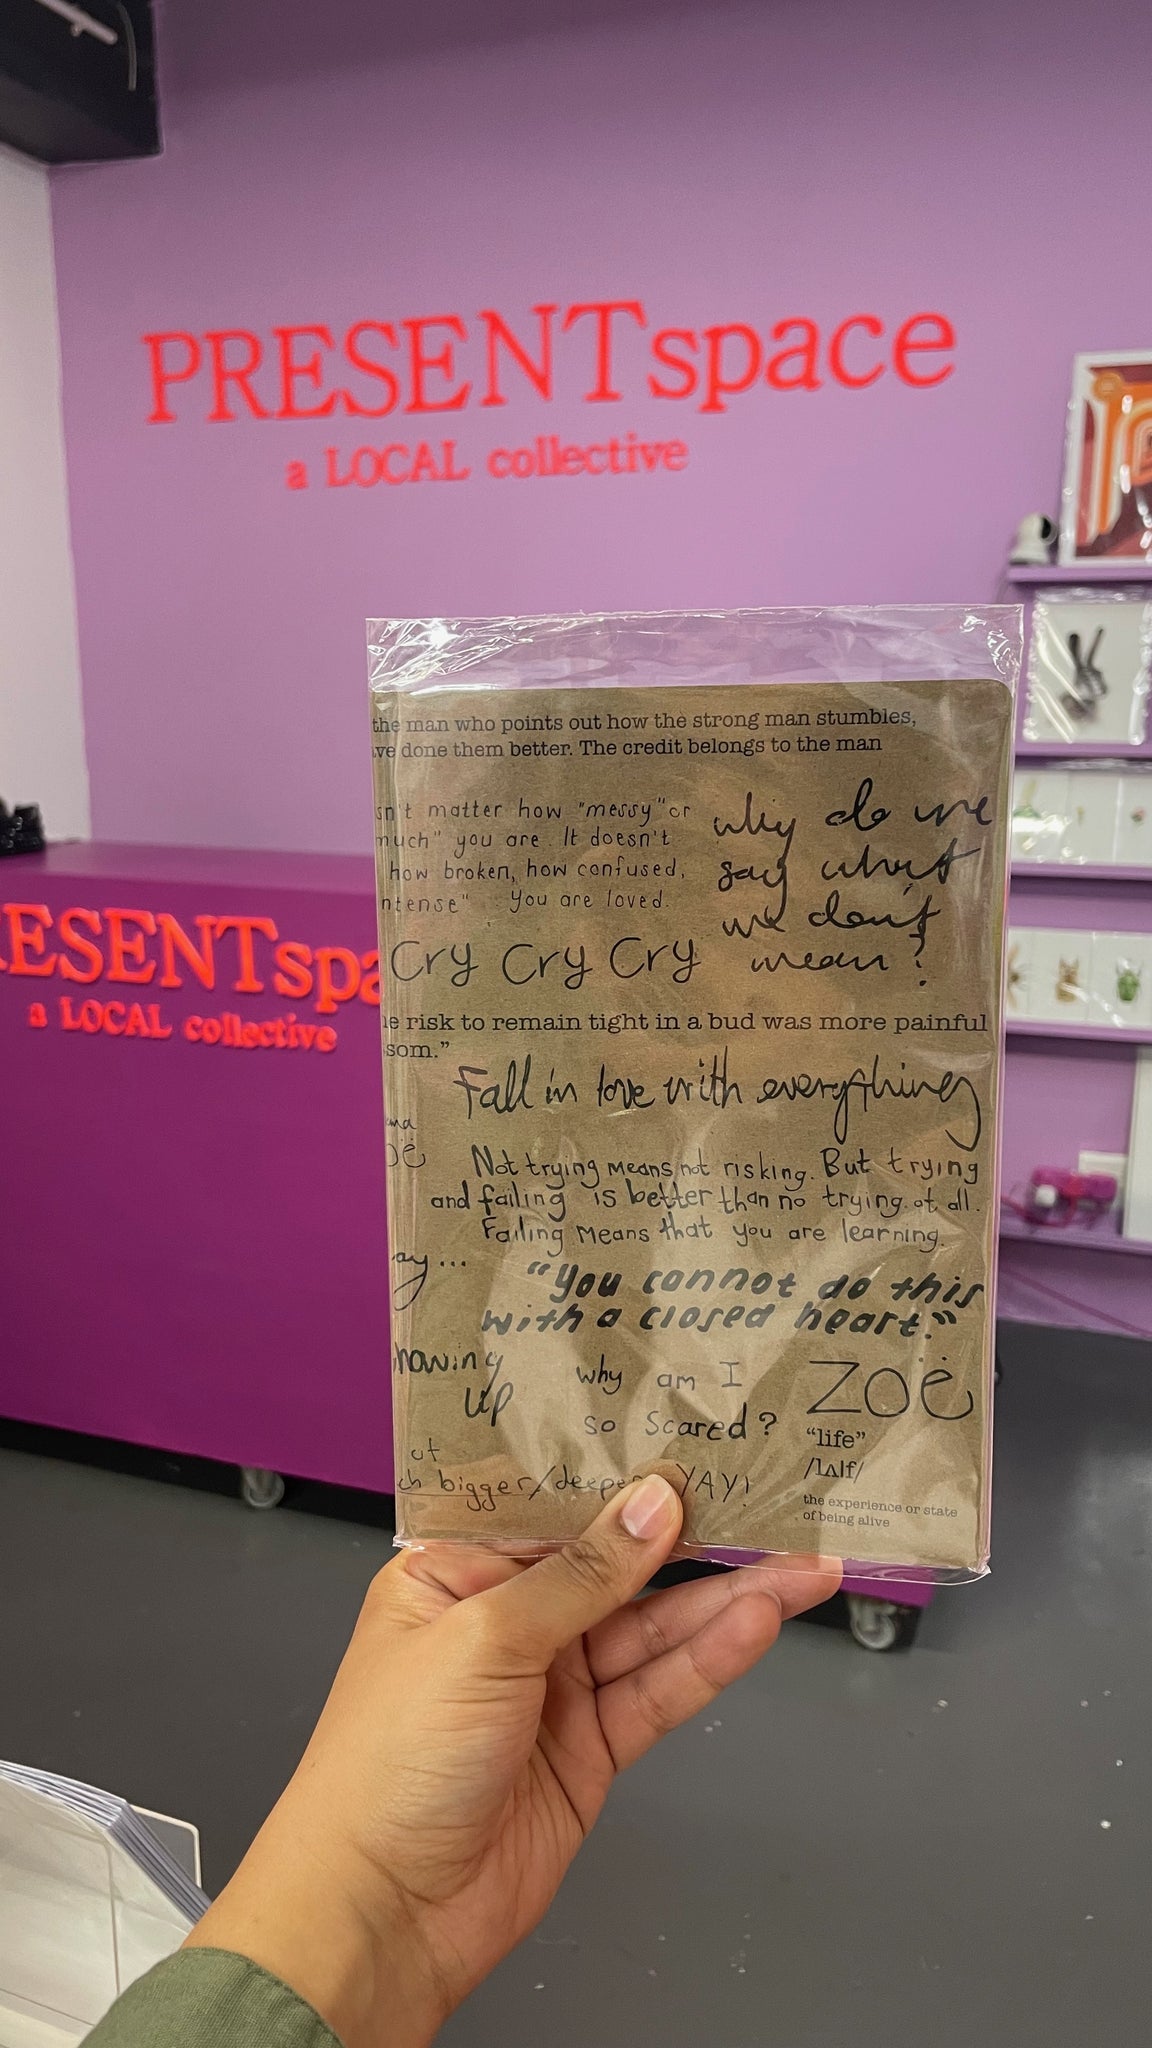 PRESENTspace
a LOCAL collective
the man who points out how the strong man stumbles,
ve done them better. The credit belongs to the man
sn't matter how "messy" or
much" you are. It doesn't
how broken, how confused,
ntense" you are loved.
why do we
say what
we don't
mean?
Cry Cry Cry
e risk to remain tight in a bud was more painful
som."
Fall in love with everything
Not trying means not risking. But trying
and failing is better than no trying at all.
Failing means that you are learning.
ay...
"you cannot do this
with a closed heart."
howing
up
why am I
so scared?
ZOË
"life"
/lʌlf/
the experience or state
of being alive
ch bigger/deeper YAY!
ESENTspa
a LOCAL collective